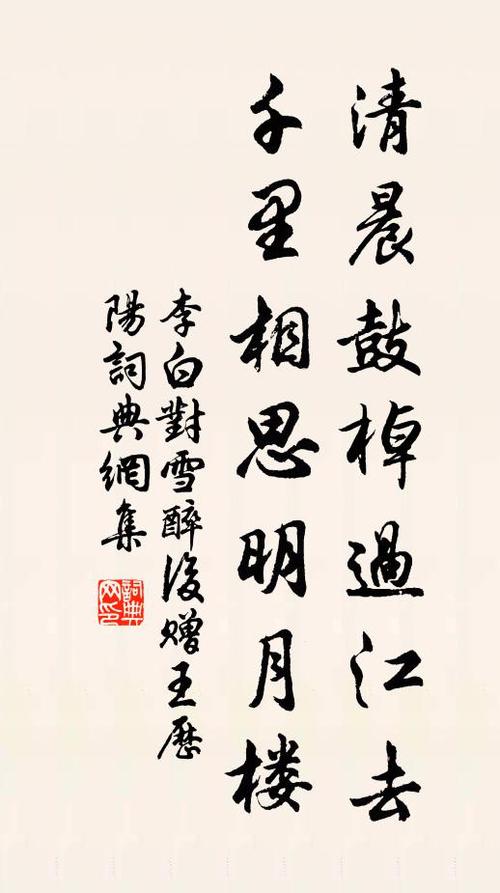 清晨鼓棹過江去
千里相思明月楼
李白對雪醉後贈王歷
陽詞典網集
詞典网印